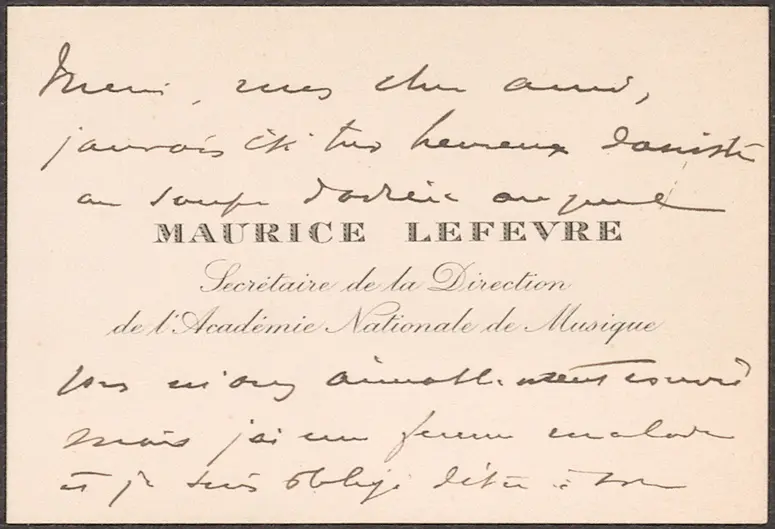 Merci, mes cher amis,
j'aurais été très heureux d'assister
au souper d'adieu auquel
MAURICE LEFEVRE
Secrétaire de la Direction
de l'Académie Nationale de Musique
vous m'avez aimablement convié
mais j'ai ma femme malade
et je suis obligé d'être à